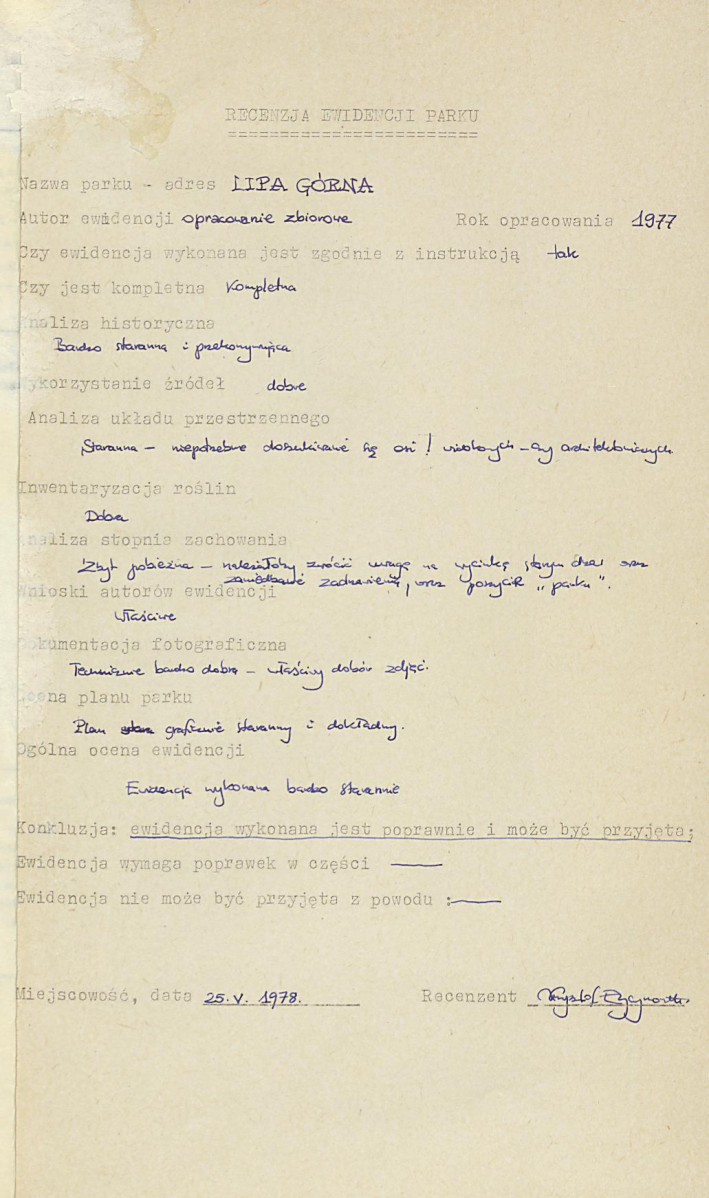 RECENZJA EWIDENCJI PARKU
=========================
Nazwa parku - adres LIPA GÓRNA
Autor ewidencji opracowanie zbiorowe Rok opracowania 1977
Czy ewidencja wykonana jest zgodnie z instrukcją tak
Czy jest kompletna Kompletna
Analiza historyczna
Bardzo staranna i przekonywująca
Wykorzystanie źródeł dobre
Analiza układu przestrzennego
Staranna – niepotrzebne doszukiwanie się osi! widokowych – czy architektonicznych
Inwentaryzacja roślin
Dobra
Analiza stopnia zachowania
Zbyt pobieżna – należałoby zwrócić uwagę na wycinkę starych drzew oraz
zaniedbanie zadrzewienia, oraz "parku".
Wnioski autorów ewidencji
Właściwe
Dokumentacja fotograficzna
Technicznie bardzo dobra – właściwy dobór zdjęć.
Ocena planu parku
Plan graficznie staranny i dokładny.
Ogólna ocena ewidencji
Ewidencja wykonana bardzo starannie
Konkluzja: ewidencja wykonana jest poprawnie i może być przyjęta;
Ewidencja wymaga poprawek w części ——
Ewidencja nie może być przyjęta z powodu :——
Miejscowość, data 25.V. 1978.
Recenzent Krzysztof